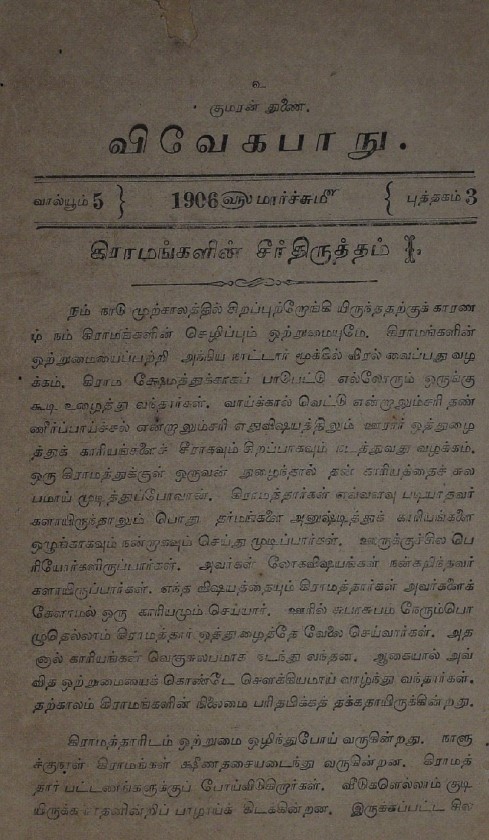 உ
குமரன் துணை.
விவேகபாநு.
வால்யூம் 5 } 1906 ௵ மார்ச்சும்௴ { புத்தகம் 3
கிராமங்களின் சீர்திருத்தம்
நம் நாடு முற்காலத்தில் சிறப்புற்றோங்கி யிருந்ததற்குக் காரண
ம் நம் கிராமங்களின் செழிப்பும் ஒற்றுமையுமே. கிராமங்களின்
ஒற்றுமையைப்பற்றி அந்நிய நாட்டார் மூக்கில் விரல் வைப்பது வழ
க்கம். கிராம க்ஷேமத்துக்காகப் பாடுபட்டு எல்லோரும் ஒருங்கு
கூடி உழைத்து வந்தார்கள். வாய்க்கால் வெட்டு என்றாலும்சரி தண்
ணீர்ப்பாய்ச்சல் என்றாலும்சரி எதுவிஷயத்திலும் ஊரார் ஒத்துழை
த்துக் காரியங்களைச் சீராகவும் சிறப்பாகவும் நடத்துவது வழக்கம்.
ஒரு கிராமத்துக்குள் ஒருவன் நுழைந்தால் தன் காரியத்தைச் சுல
பமாய் முடித்துப்போவான். கிராமத்தார்கள் எவ்வளவு படியாதவர்
களாயிருந்தாலும் பொது தர்மங்களை அனுஷ்டித்துக் காரியங்களை
ஒழுங்காகவும் நன்றாகவும் செய்து முடிப்பார்கள். ஊருக்குச்சில பெ
ரியோர்களிருப்பார்கள். அவர்கள் லோகவிஷயங்கள் நன்கறிந்தவர்
களாயிருப்பார்கள். எந்த விஷயத்தையும் கிராமத்தார்கள் அவர்களைக்
கேளாமல் ஒரு காரியமும் செய்யார். ஊரில் சுபாசுபம் நேரும்பொ
ழுதெல்லாம் கிராமத்தார் ஒத்துழைத்தே வேலை செய்வார்கள். அத
னால் காரியங்கள் வெகுசுலபமாக நடந்து வந்தன. ஆகையால் அவ்
வித ஒற்றுமையைக் கொண்டே சௌக்கியமாய் வாழ்ந்து வந்தார்கள்.
தற்காலம் கிராமங்களின் நிலைமை பரிதபிக்கத் தக்கதாயிருக்கின்றது.
கிராமத்தாரிடம் ஒற்றுமை ஒழிந்துபோய் வருகின்றது. நாளு
க்குநாள் கிராமங்கள் க்ஷீணதசையடைந்து வருகின்றன. கிராமத்
தார் பட்டணங்களுக்குப் போய்விடுகிறார்கள். வீடுகளெல்லாம் குடி
யிருக்க பாழாய்க் கிடக்கின்றன. இருகூறப்பட்ட சில